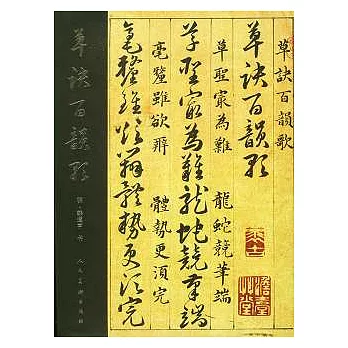 草訣百韻歌
草訣百韻歌
草聖㝡為難 龍蛇競筆端
草聖㝡為難龍蛇競筆端
毫釐雖欲辨 體勢更須完
毫釐雖欲辨體勢更須完
草訣百韻歌
人民美術出版社